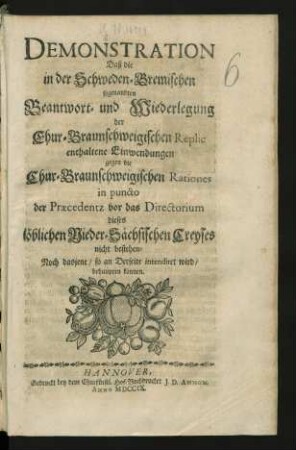 6
DEMONSTRATION
Daß die
in der Schweden-Bremischen
sogenandten
Beantwort- und Wiederlegung
der
Chur-Braunschweigischen Replic
enthaltene Einwendungen
gegen die
Chur-Braunschweigischen Rationes
in puncto
der Præcedentz vor das Directorium
dieses
löblichen Nieder-Sächsischen Creyses
nicht bestehen/
Noch dasjene/ so an Derseite intendiret wird/
behaupten können.
HANNOVER,
Gedruckt bey dem Churfürstl. Hof-Buchdrucker J. D.
ANNO MDCCIX.